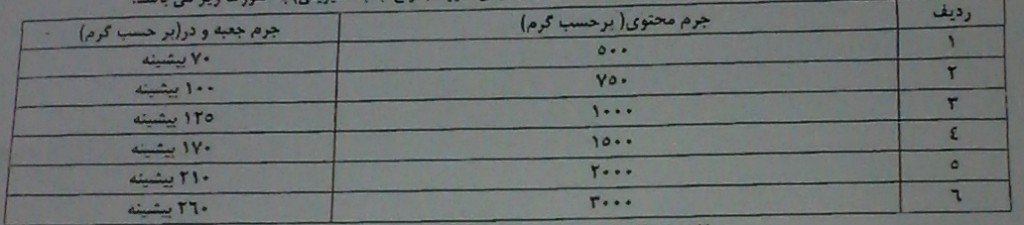 ردیف جرم محتوی( برحسب گرم) جرم جعبه و در(بر حسب گرم)
۱ ۵۰۰ ۷۰ بیشینه
۲ ۷۵۰ ۱۰۰ بیشینه
۳ ۱۰۰۰ ۱۲۵ بیشینه
٤ ۱۵۰۰ ۱۷۰ بیشینه
۵ ۲۰۰۰ ۲۱۰ بیشینه
٦ ۳۰۰۰ ۲٦۰ بیشینه